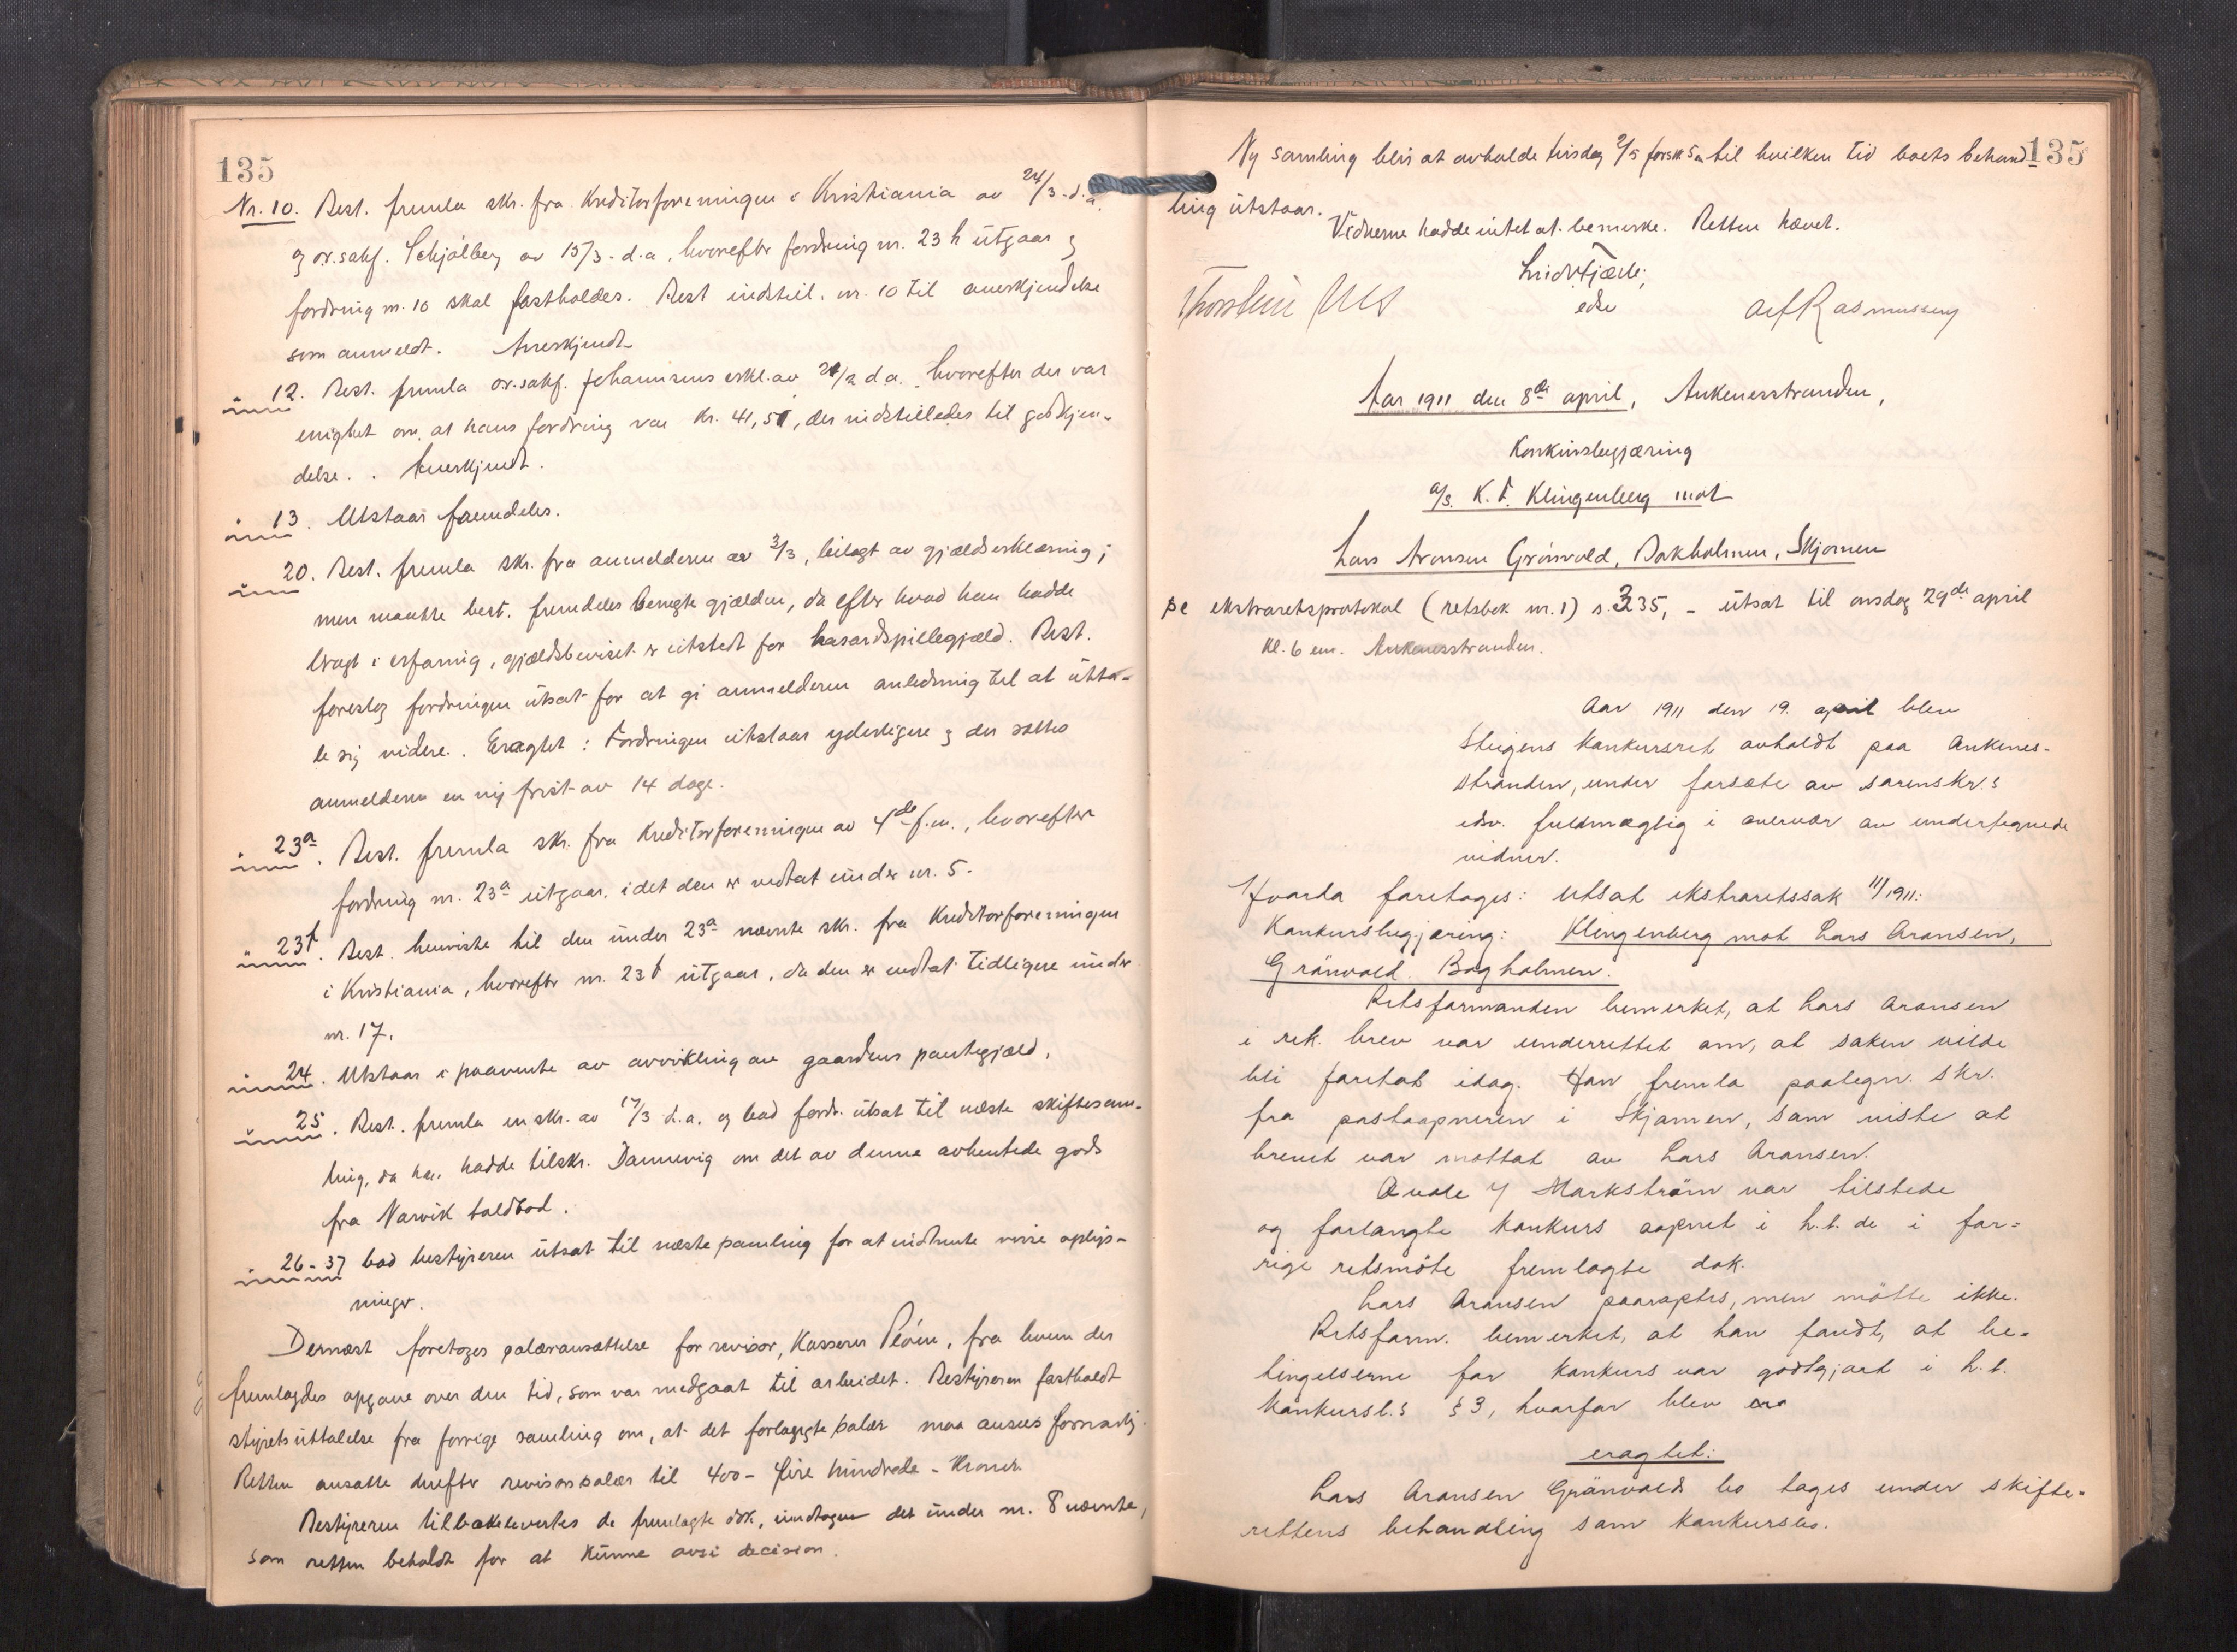 135
Nr. 10. Best. fremla skr. fra Kreditorforeningen i Kristiania av 24/3 d.a.
og or.sakf. Schjølberg av 15/3 - d.a, hvorefter fordring nr. 23 h utgaar og
fordring nr. 10 skal fastholdes. Best indstill. nr. 10 til anerkjendelse
som anmeldt. Anerkjendt
" 12. Best. fremla or.sakf. Johannesens erkl. av 24/2 d a. hvorefter der var
enighet om, at hans fordring var Kr. 41,51, der indstilledes til godkjen-
delse. . Anerkjendt.
" 13. Utstaar fremdeles.
" 20. Best. fremla skr. fra anmelderen av 3/3, bilagt av gjældserklæring;
men maatte best. fremdeles benegte gjælden, da efter hvad han hadde
bragt i erfaring, gjældsbeviset er utstedt for hasardspillegjæld. Best.
foreslog fordringen utsat for at gi anmelderen anledning til at utta-
le sig videre. Eragtet: Fordringen utstaar yderligere og der sattes
anmelderen en ny frist av 14 dage.
" 23a. Best. fremla skr. fra Kreditorforeningen av 4de f.m., hvorefter
fordring nr. 23a utgaar, idet den er medtat under nr. 5.
" 23f. Best. henviste til den under 23a nævnte skr. fra Kreditorforeningen
i Kristiania, hvorefter nr. 23f utgaar, da den er medtat tidligere under
nr. 17.
" 24. Utstaar i paavente av avvikling av gaardens pantegjæld.
" 25. Best. fremla en skr. av 17/3 d.a. og bad fordr. utsat til næste skiftesam-
ling, da han hadde tilskr. Dannevig om det av denne avhentede gods
fra Narvik toldbod.
" 26-37 bad bestyreren utsat til næste samling for at indhente visse oplys-
ninger.
Dernæst foretoges salæransættelse for revisor, Kasserer , fra hvem der
fremlagdes opgave over den tid, som var medgaat til arbeidet. Bestyreren fastholdt
styrets uttalelse fra forrige samling om, at det forlangte salær maa ansees
Retten ansatte derefter revisors salær til 400 - fire hundrede - Kroner.
Bestyreren tilbakelevertes de fremlagte dok, undtagen det under nr. 8 nævnte,
som retten beholdt for at kunne avsi decision.
Ny samling blir at avholde tirsdag 2/5 førsk 5 em til hvilken tid boets behand- 135
ling utstaar.
Vidnerne hadde intet at bemerke. Retten hævet.
Thorstein Alf Rasmussen
Aar 1911 den 8de april, Ankenesstranden,
Konkursbegjæring
a/s. K. F. Klingenberg mot
Lars Aronsen Grönvold, Bakholmen, Skjomen
se ekstraretsprotokol (retsbok nr. 1) s. 335, - utsat til onsdag 29de april
Kl. 6 em. Ankenesstranden.
Aar 1911 den 19. april blev
Steigens konkursret avholdt paa Ankenes-
stranden, under forsæte av sorenskr.s
edsv. fuldmægtig i overvær av undertegnede
vidner.
Hvorda foretoges: utsat ekstraretssak 11/1911:
Konkursbegjæring: Klingenberg mot Lars Aronsen,
Grönvold Bagholmen.
Retsformanden bemerket, at Lars Aronsen
i rek. brev var underrettet om, at saken vilde
bli foretat idag. Han fremla paategn. skr.
fra postaapneren i Skjomen, som viste at
brevet var mottat av Lars Aronsen.
Qvale v/ Markström var tilstede
og forlangte konkurs aapnet i h.t. de i for-
rige retsmöte fremlagte dok.
Lars Aronsen paaraptes, men mötte ikke.
Retsform. bemerket, at han fandt, at be-
tingelserne for konkurs var godtgjort i h.t.
konkursl.s § 3, hvorfor blev
eragtet:
Lars Aronsen Grönvolds bo tages under skifte-
rettens behandling som konkursbo.